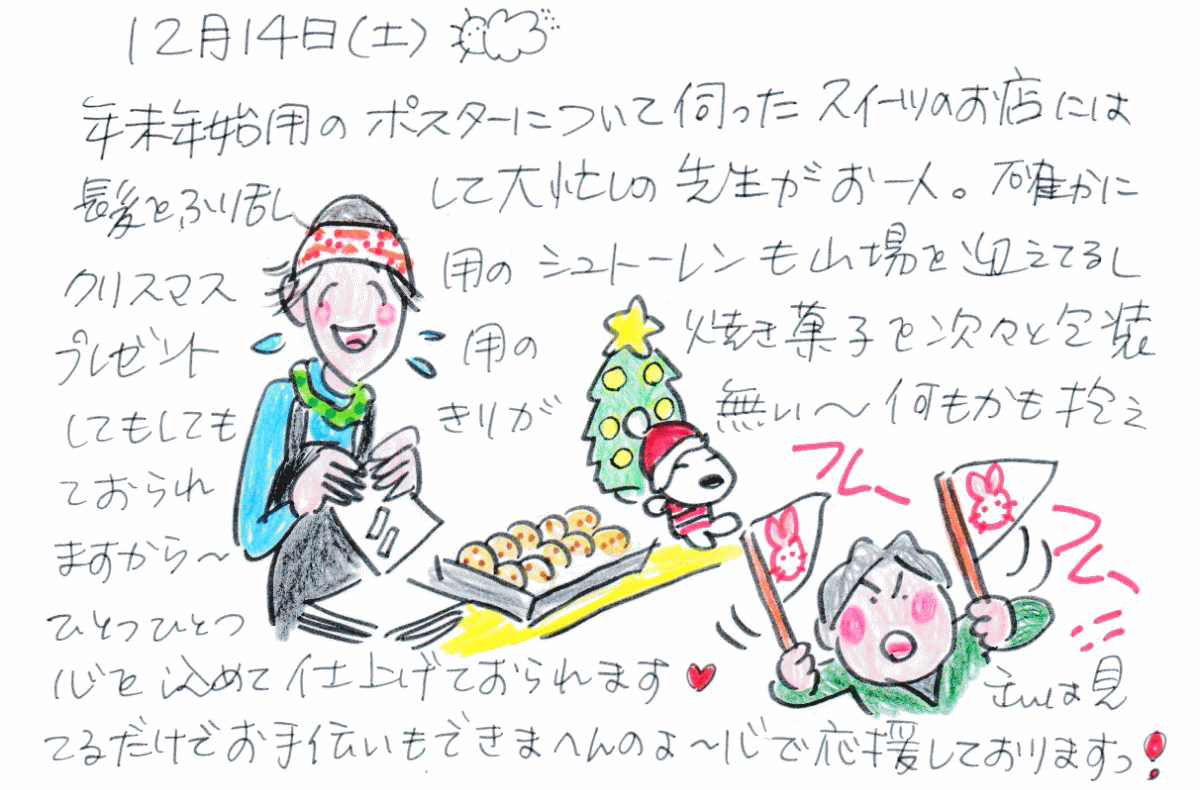 12月14日(土)
年末年始用のポスターについて伺ったスイーツのお店には
髪をふり乱して大忙しの先生がお一人。確かに
クリスマス用のシュトーレンも山場を迎えてるし
プレゼント用の焼き菓子を次々と包装
してもしてもきりが無い～何もかも抱え
ておられ
ますから～
ひとつひとつ
心を込めて仕上げておられます
フレー
フレー
主人は見
てるだけでお手伝いもできまへんのよ～心で応援しておりますっ!